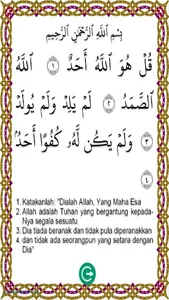 بِسْمِ ٱللَّهِ ٱلرَّحْمَٰنِ ٱلرَّحِيمِ
قُلْ هُوَ ٱللَّهُ أَحَدٌ ١ ٱللَّهُ
ٱلصَّمَدُ ٢ لَمْ يَلِدْ وَلَمْ يُولَدْ
٣ وَلَمْ يَكُن لَّهُۥ كُفُوًا أَحَدٌۢ
٤
1. Katakanlah: "Dialah Allah, Yang Maha Esa
2. Allah adalah Tuhan yang bergantung kepada-
Nya segala sesuatu
3. Dia tiada beranak dan tidak pula diperanakkan
4. dan tidak ada seorangpun yang setara dengan
Dia"